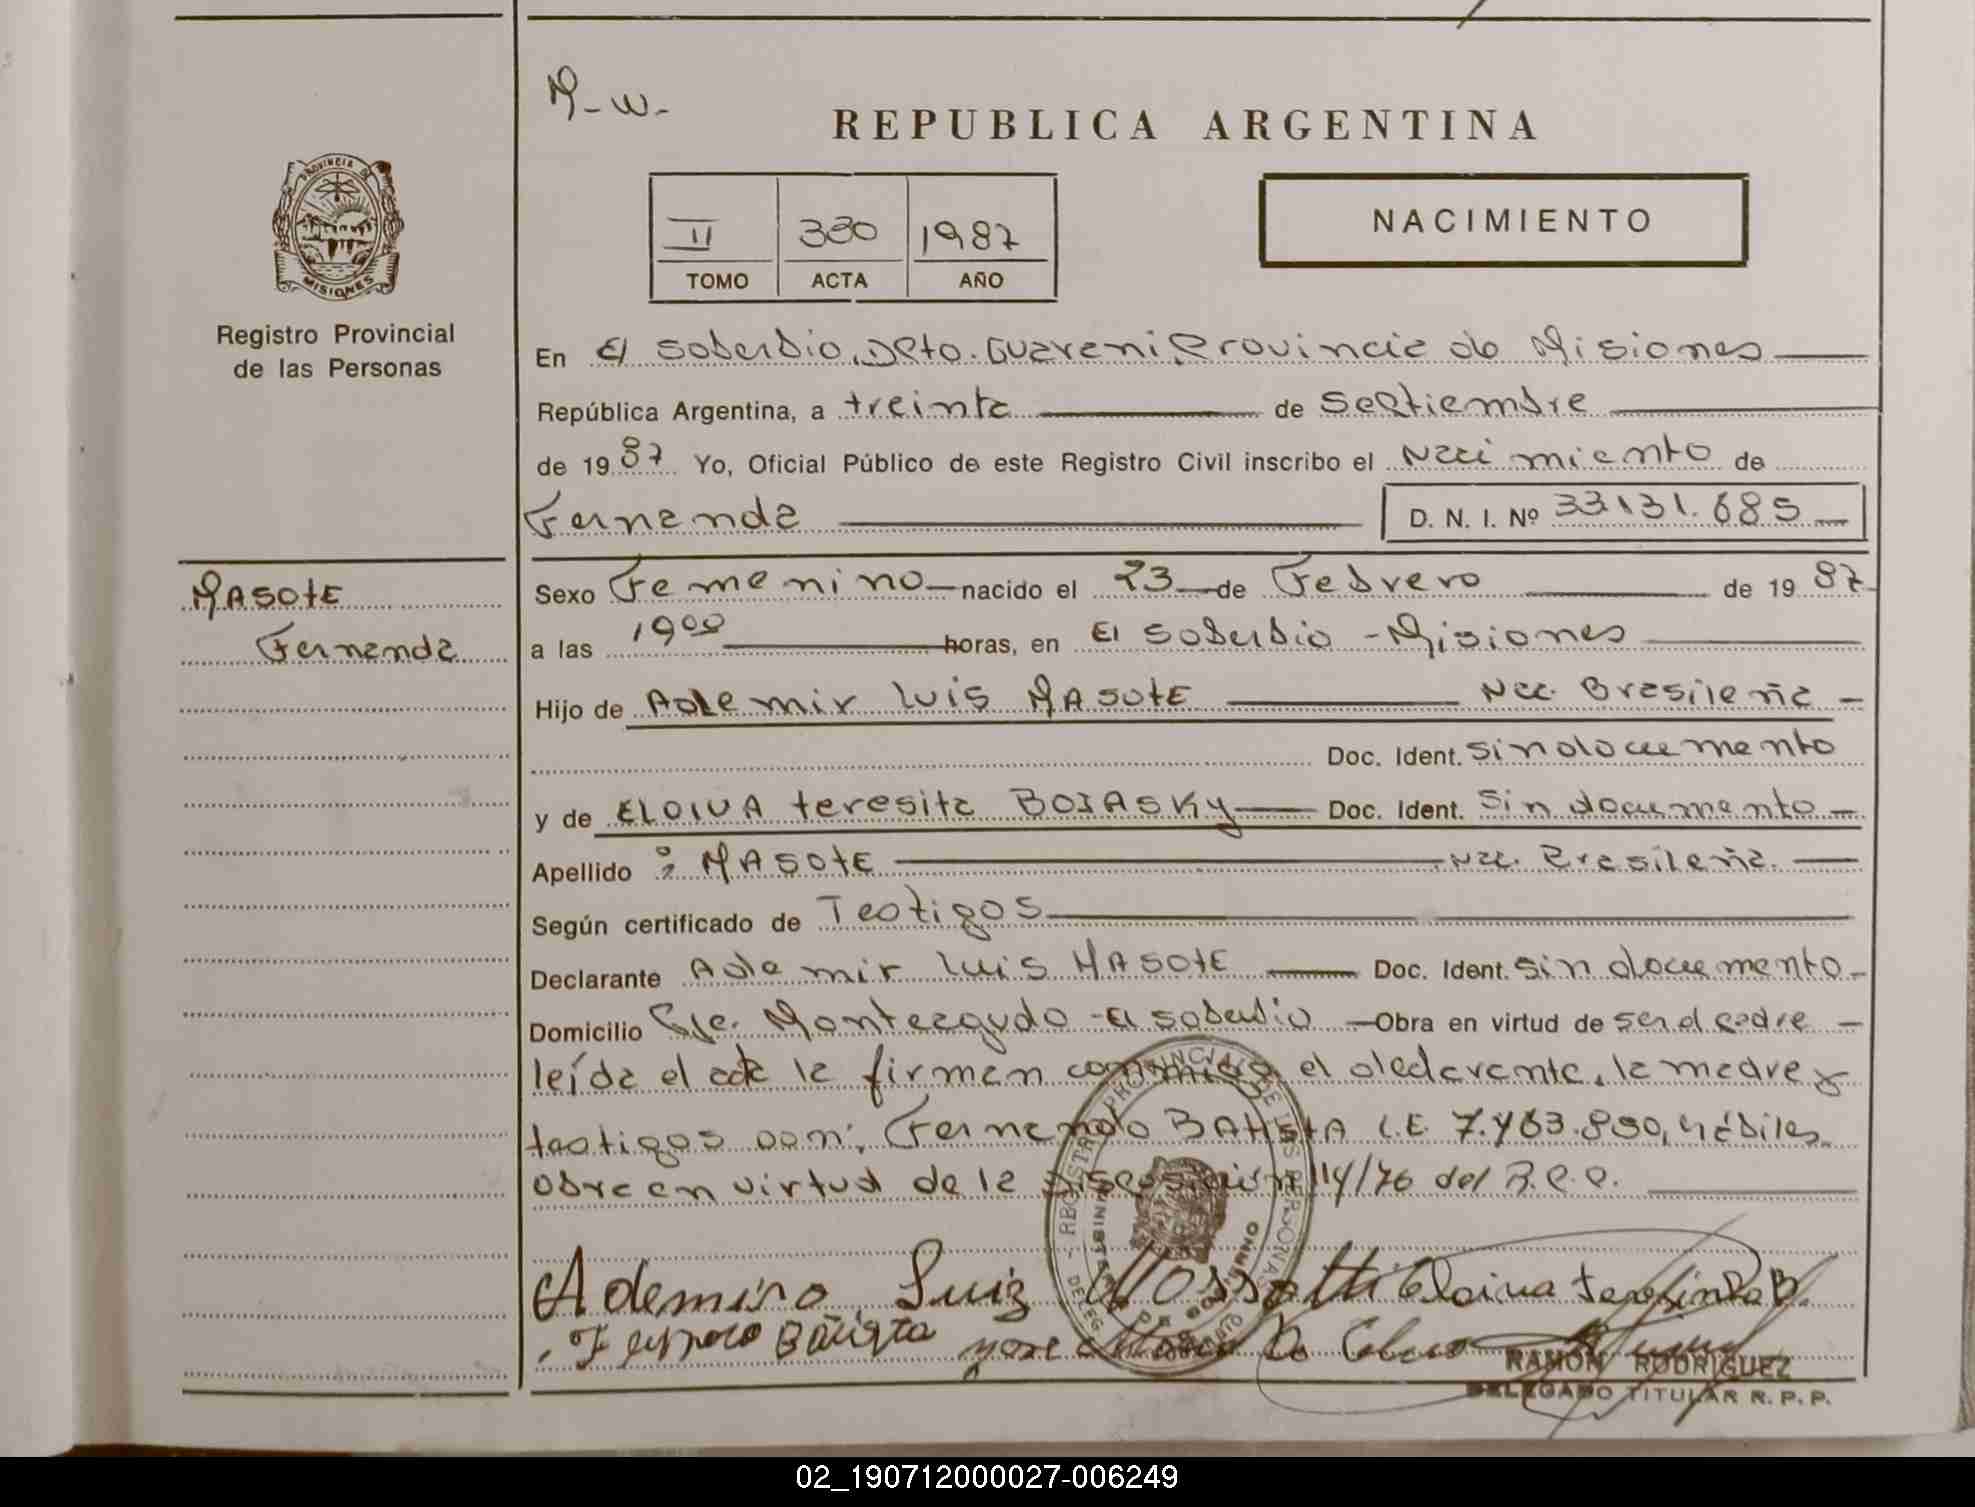 M-W-
REPUBLICA ARGENTINA
PROVINCIA DE
MISIONES
II 330 1987
TOMO ACTA AÑO
NACIMIENTO
Registro Provincial
de las Personas
En El Soberbio, Dpto. Guarani, Provincia de Misiones
República Argentina, a treinta de Septiembre
de 1987 Yo, Oficial Público de este Registro Civil inscribo el Nacimiento de
Fernanda D. N. I. Nº 33.131.685
MASOtE
Fernanda
Sexo Femenino nacido el 23 de Febrero de 1987
a las 19⁰⁰ horas, en El Soberbio - Misiones
Hijo de Ademir Luis MASOtE Nac. Brasileña
Doc. Ident. sin documento
y de ELOIVA teresita BOIASKY Doc. Ident. sin documento
Apellido : MASOtE Nac. Brasileña.
Según certificado de Testigos
Declarante Ademir Luis MASOtE Doc. Ident. sin documento
Domicilio Cje. Monteagudo - El soberbio Obra en virtud de ser el padre
leída el acta la firman conmigo el declarante, la madre y
testigos Don: Fernando BAtIstA L.E. 7.463.890, hábiles
obra en virtud de la Disposición 114/76 del R.P.P.
Ademiro Luiz Eloiva Teresinha B.
Batista
RAMON RODRIGUEZ
DELEGADO TITULAR R. P. P.
02_190712000027-006249